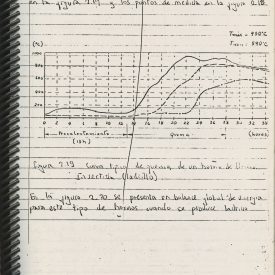 en la figura 2.19 y los puntos de medida en la figura 2.18.
Tmax = 950ºC
Tmin = 890ºC
(ºC)
1000
800
600
400
200
0 2 4 6 8 10 12 14 16 18 20 22 24 26 28 30 32 34 36
Precalentamiento Quema (horas)
(15h)
Figura 2.19 Curva típica de quema de un horno de
Invertida (ladrillo)
En la figura 2.20 se presenta en balance global de energía
para este tipo de hornos cuando se produce ladrillo